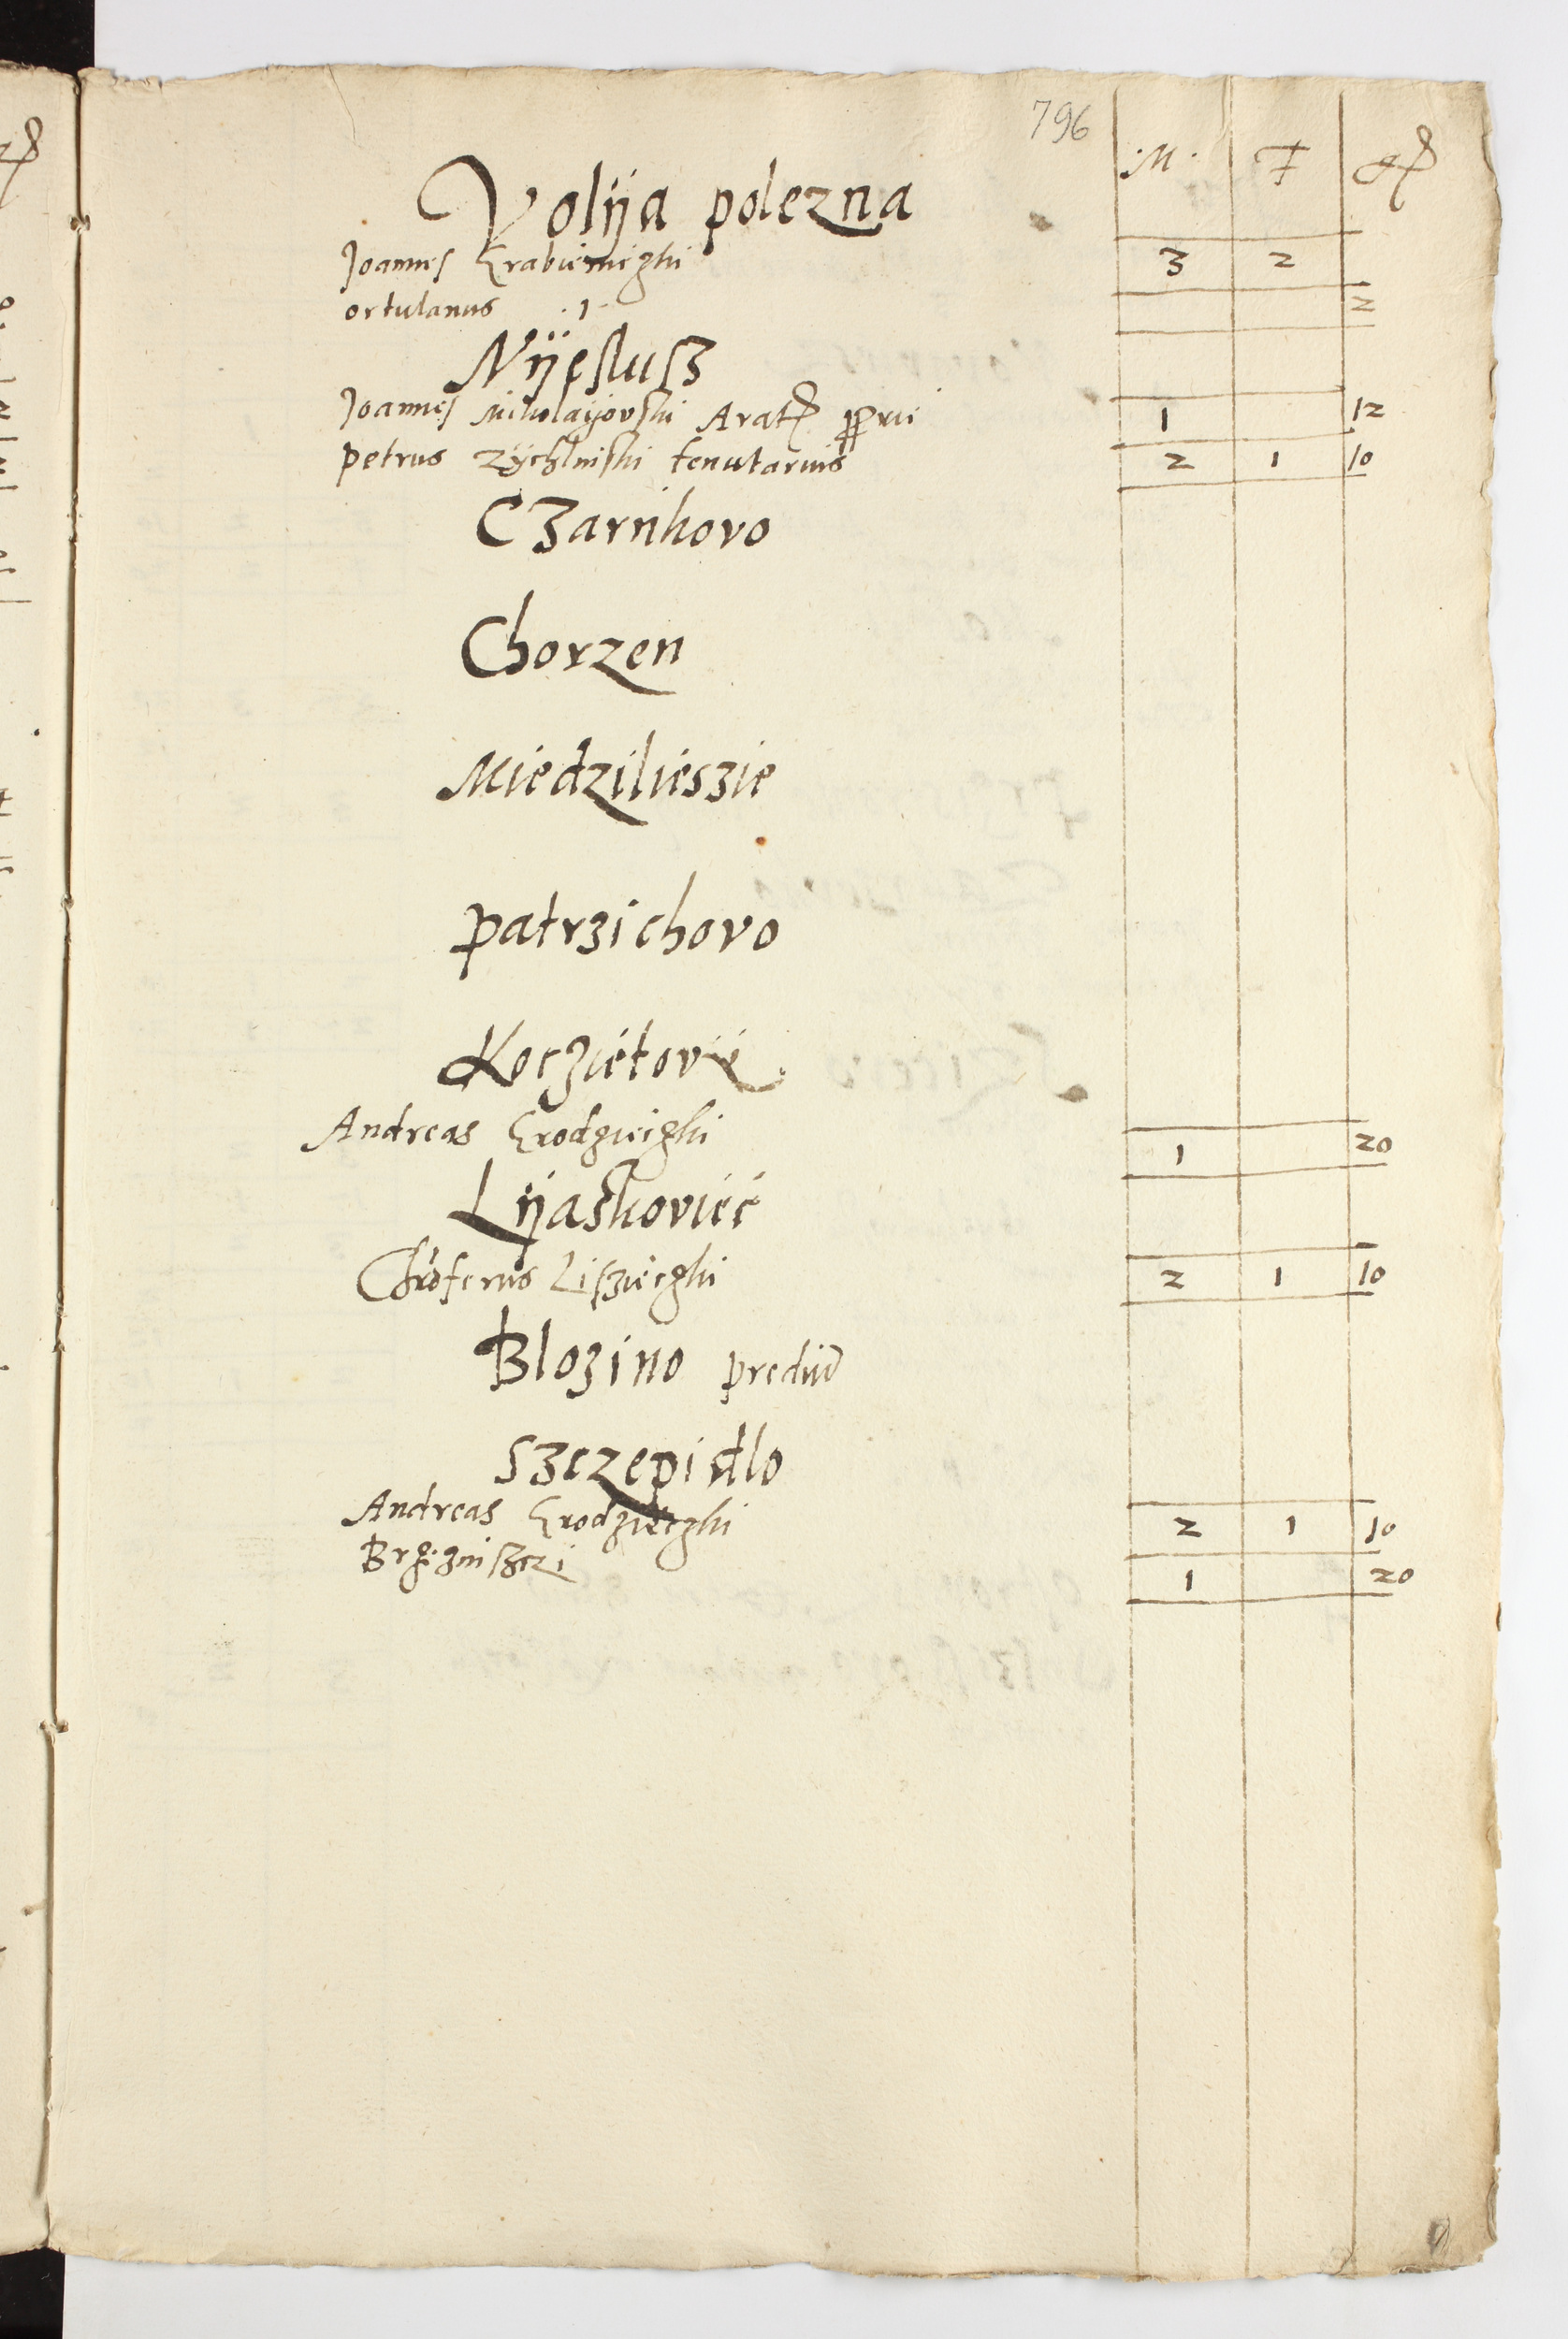 796
M. F gr
Volÿa polezna
Joannes Grabieniczki 3 2
ortulanus .1. 2
Nÿesłusz
Joannes Mikolaÿovski Arat 1 12
petrus Zÿchlinski tenutarius 2 1 10
CZarnkovo
Chorzen
Miedzilieszie
patrzichovo
Koczietovi
Andreas Grodzieczki 1 20
Lÿaskoviec
Chrõferus Liszieczki 2 1 10
Blozino prediũ
Szczepidlo
Andreas Grodzieczki 2 1 10
1 20